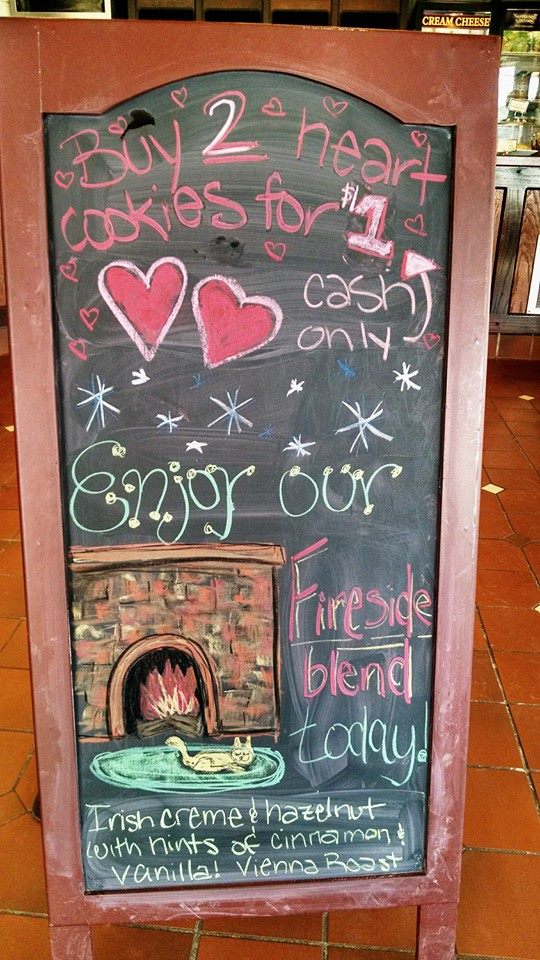 CREAM CHEESE
Buy 2 heart
cookies for $1
cash
only
Enjoy our
Fireside
blend
today!
Irish creme & hazelnut
with hints of cinnamon &
vanilla! Vienna Roast